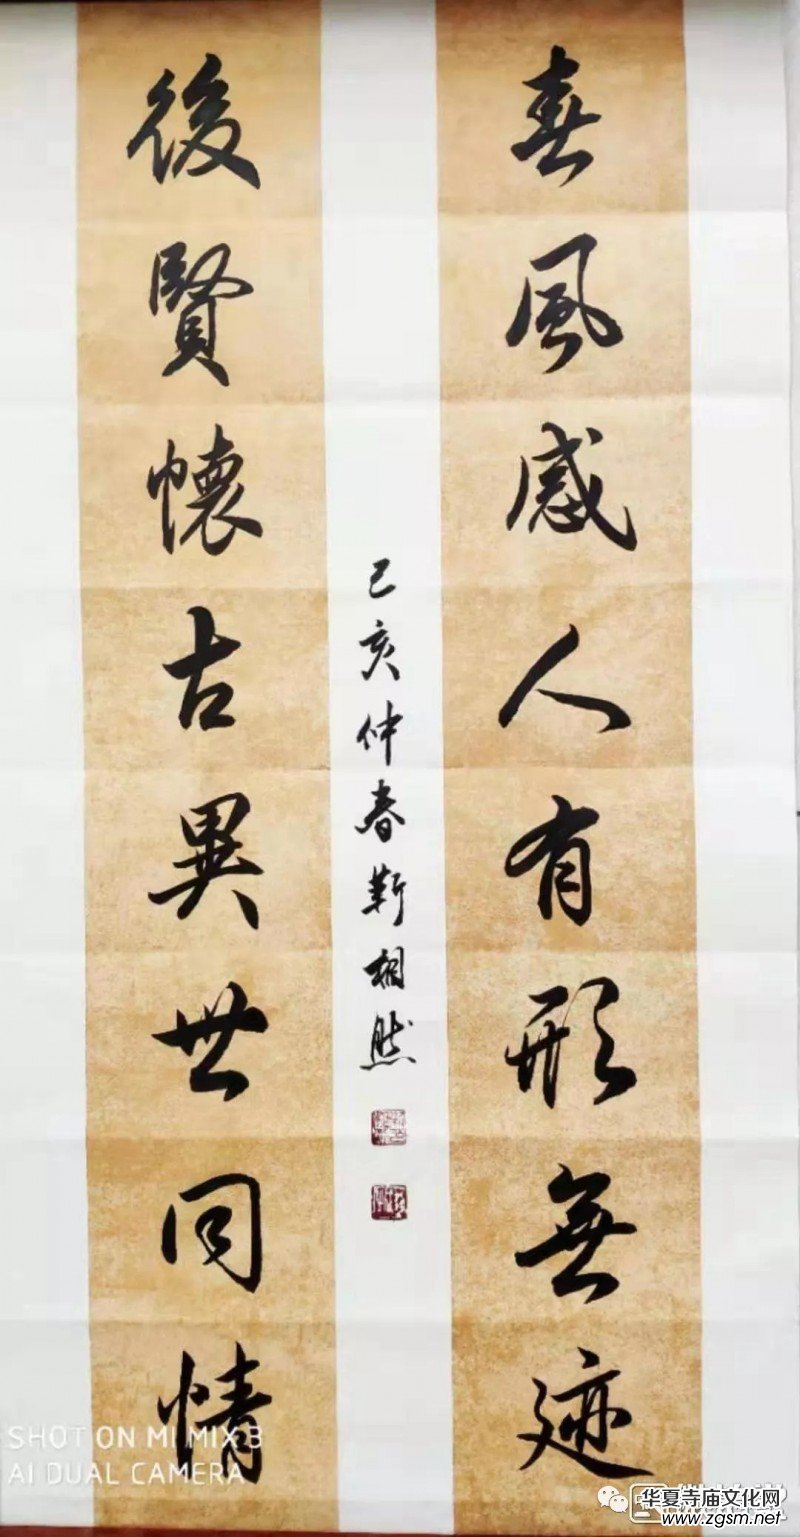 春風感人有形無迹
後賢懷古異世同情
己亥仲春靳相然
SHOT ON MI MIX 3
AI DUAL CAMERA
华夏寺庙文化网
www.zgsm.net